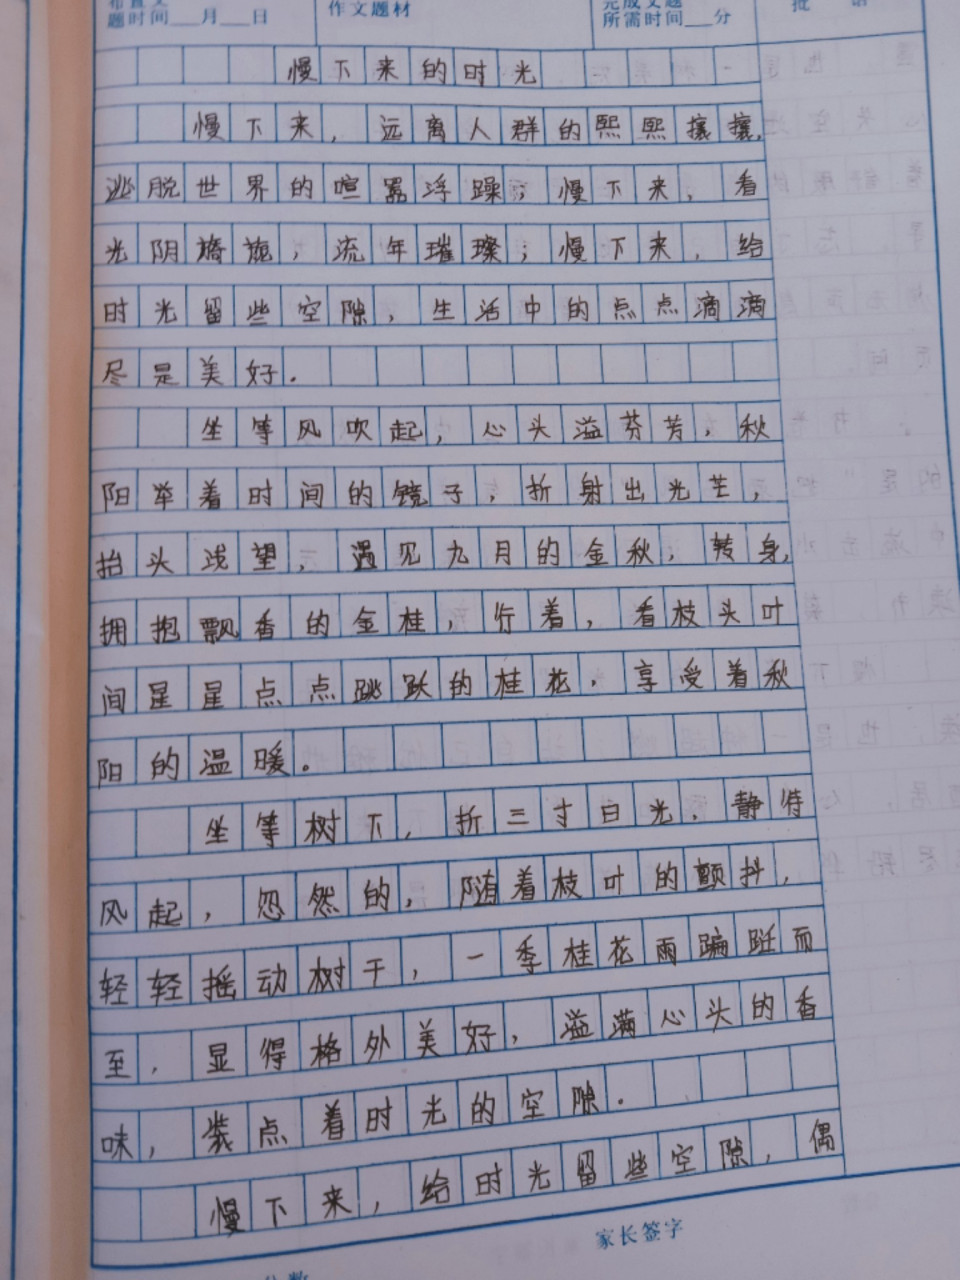 题时间___月___日
作文题材
所需时间___分
慢下来的时光
慢下来，远离人群的熙熙攘攘，
逃脱世界的喧嚣浮躁；慢下来，看
光阴旖旎，流年璀璨；慢下来，给
时光留些空隙，生活中的点点滴滴
尽是美好.
坐等风吹起，心头溢芬芳，秋
阳举着时间的镜子，折射出光芒，
抬头战望，遇见九月的金秋，转身，
拥抱飘香的金桂，行着，看枝头叶
间星星点点跳跃的桂花，享受着秋
阳的温暖。
坐等树下，折三寸白光，静待
风起，忽然的，随着枝叶的颤抖，
轻轻摇动树干，一季桂花雨蹁跹而
至，显得格外美好，溢满心头的香
味，装点着时光的空隙.
慢下来，给时光留些空隙，偶
家长签字